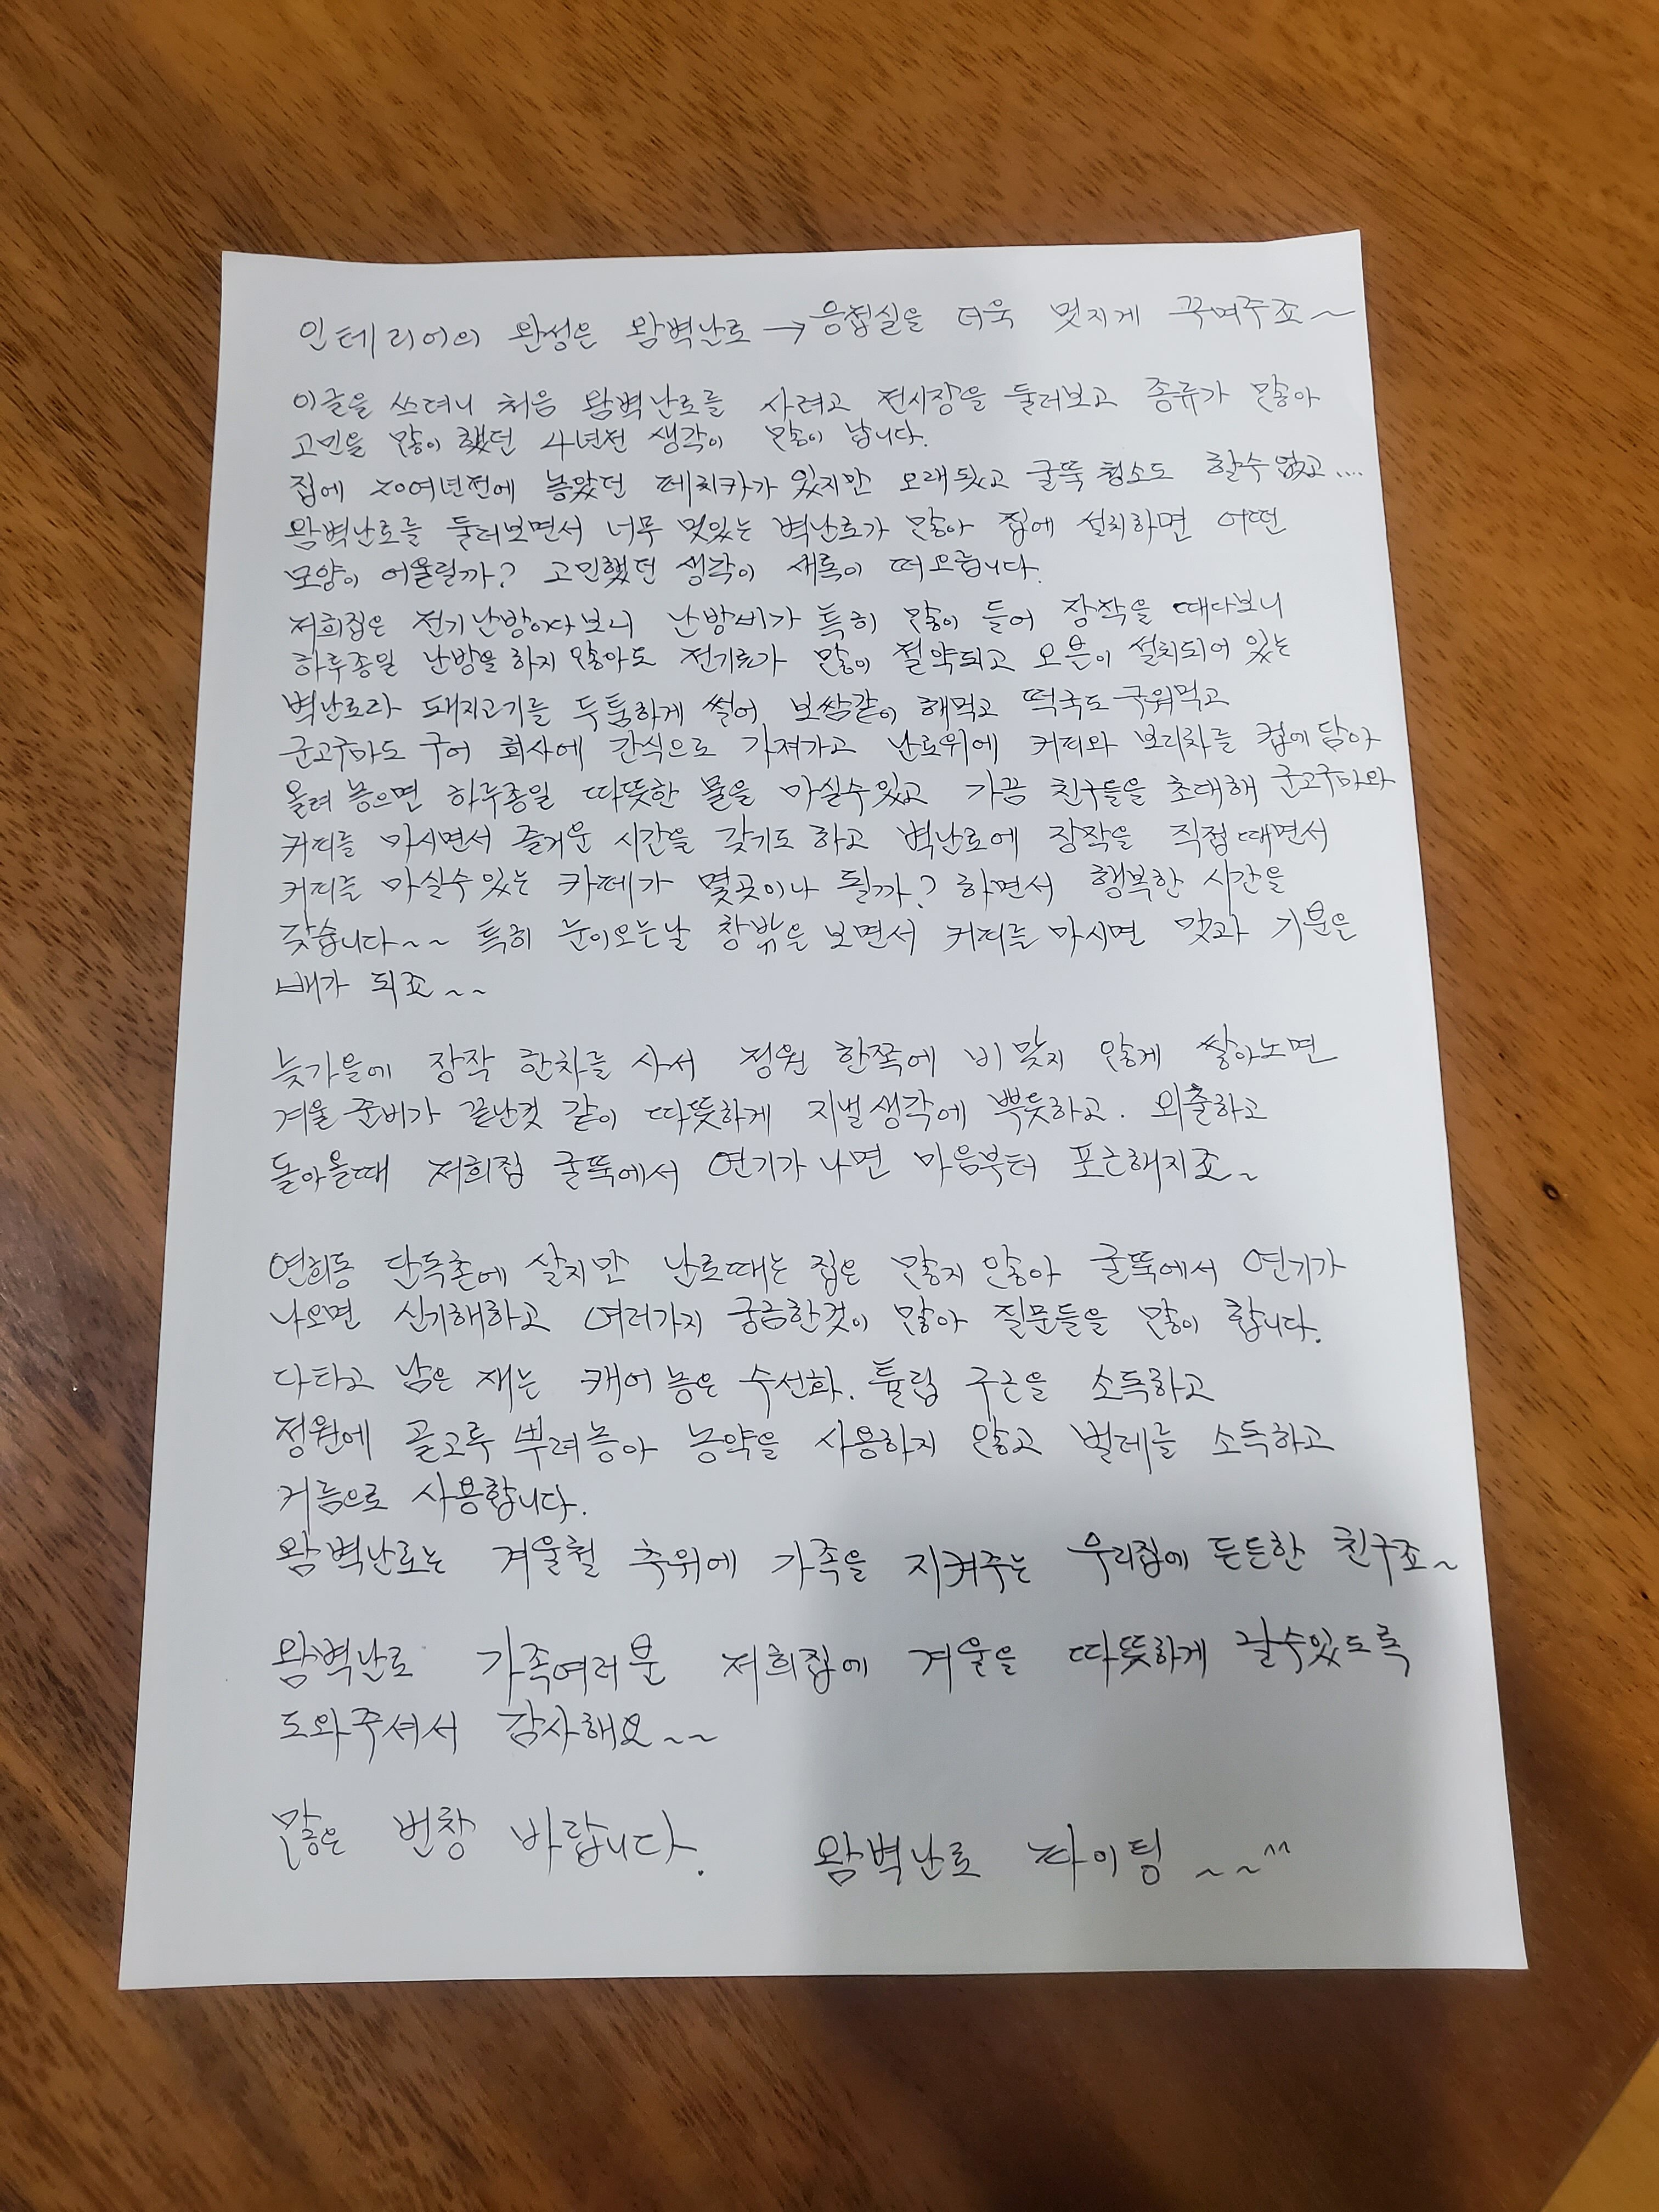 인테리어의 완성은 왐벽난로 → 응접실을 더욱 멋지게 꾸며주죠~
이글을 쓰려니 처음 왐벽난로를 사려고 전시장을 둘러보고 종류가 많아
고민을 많이 했던 4년전 생각이 많이 납니다.
집에 20여년전에 놓았던 페치카가 있지만 오래됐고 굴뚝 청소도 할수 없고....
왐벽난로를 둘러보면서 너무 멋있는 벽난로가 많아 집에 설치하면 어떤
모양이 어울릴까? 고민했던 생각이 새록이 떠오릅니다.
저희집은 전기난방이다보니 난방비가 특히 많이 들어 장작을 때다보니
하루종일 난방을 하지 않아도 전기료가 많이 절약되고 오븐이 설치되어 있는
벽난로라 돼지고기를 두툼하게 썰어 보쌈같이 해먹고 떡국도 구워먹고
군고구마도 구어 회사에 간식으로 가져가고 난로위에 커피와 보리차를 컵에 담아
올려 놓으면 하루종일 따뜻한 물을 마실수있고 가끔 친구들을 초대해 군고구마와
커피를 마시면서 즐거운 시간을 갖기도 하고 벽난로에 장작을 직접 때면서
커피를 마실수 있는 카페가 몇곳이나 될까? 하면서 행복한 시간을
갖습니다~~ 특히 눈이오는날 창밖을 보면서 커피를 마시면 맛과 기분은
배가 되죠~~
늦가을에 장작 한차를 사서 정원 한쪽에 비 맞지 않게 쌓아노면
겨울 준비가 끝난것 같이 따뜻하게 지낼생각에 뿌듯하고. 외출하고
돌아올때 저희집 굴뚝에서 연기가 나면 마음부터 포근해지죠~
연희동 단독촌에 살지만 난로때는 집은 많지 않아 굴뚝에서 연기가
나오면 신기해하고 여러가지 궁금한것이 많아 질문들을 많이 합니다.
다타고 남은 재는 캐어 놓은 수선화. 튤립 구근을 소독하고
정원에 골고루 뿌려놓아 농약을 사용하지 않고 벌레를 소독하고
거름으로 사용합니다.
왐벽난로는 겨울철 추위에 가족을 지켜주는 우리집에 든든한 친구죠~
왐벽난로 가족여러분 저희집에 겨울을 따뜻하게 날수있도록
도와주셔서 감사해요~~
많은 번창 바랍니다. 왐벽난로 화이팅 ~~^^